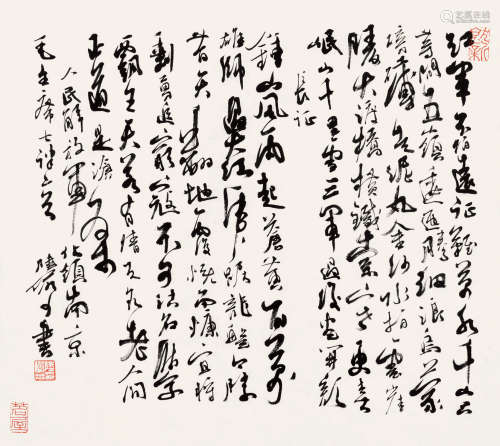 红军不怕远征难万水千山只
等闲五岭逶迤腾细浪乌蒙
磅礴走泥丸金沙水拍云崖
暖大渡桥横铁索寒更喜
岷山千里雪三军过后尽开颜
长征
钟山风雨起苍黄百万
雄师过大江虎踞龙盘今胜
昔天翻地覆慨而慷宜将
剩勇追穷寇不可沽名学
霸王天若有情天亦老人间
正道是沧桑
人民解放军占领南京
毛主席七律二首
陆俨少书